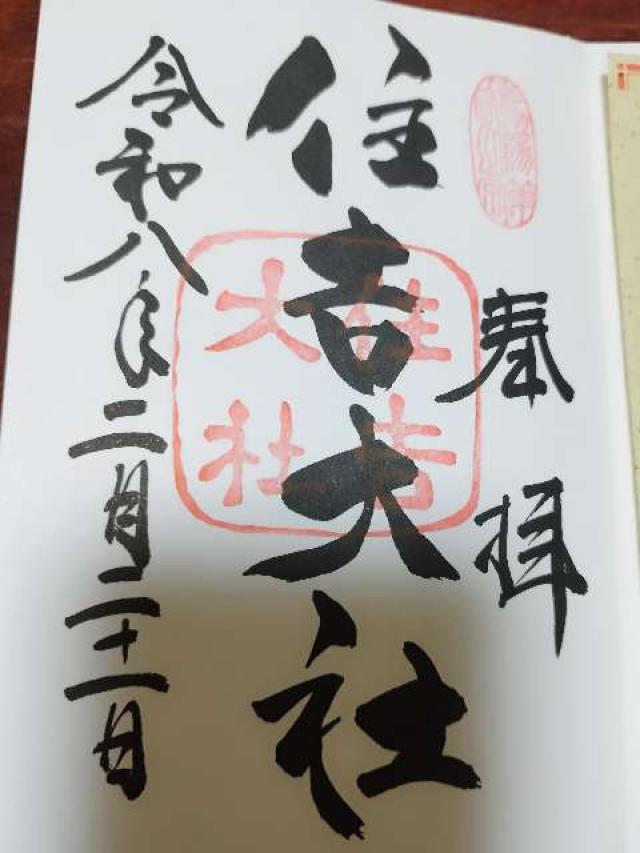 奉拝
住吉大社
住吉
大社
令和八年二月二十一日